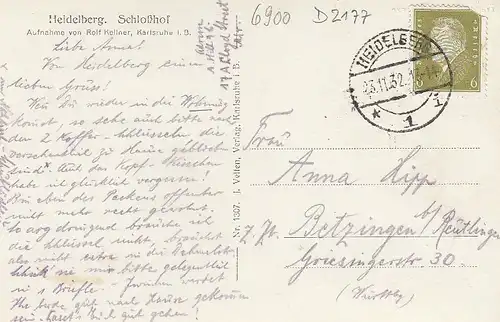 Heidelberg. Schloßhof
Aufnahme von Rolf Kellner, Karlsruhe i. B.
6900 D2177
HEIDELBERG
1
6
Liebe Anna!
Von Heidelberg einen
lieben Gruss!
Wenn Du wieder in die Wohnung
kommst, so sehe auch bitte nach
den 2 Koffer-Schlüsseln die
versehentlich zu Hause geblieben
sind. Auch das Kopf-Kisschen
habe ich glücklich vergessen!
Bin eben des Packens offenbar
nicht mehr recht gewohnt.
So arg dringend brauche ich
die Schlüssel nicht, brauchst
also nicht extra in die
mir bitte gelegentlich
in 1 Briefle.
gut nach Hause gekommen
gut gehen!
Nr. 1367. J. Velten, Verlag, Karlsruhe i. B.
Frau
Anna Hipp
Betzingen b/ Reutlingen
z. Zt.
Griesingerstr 30.
(Württbg)